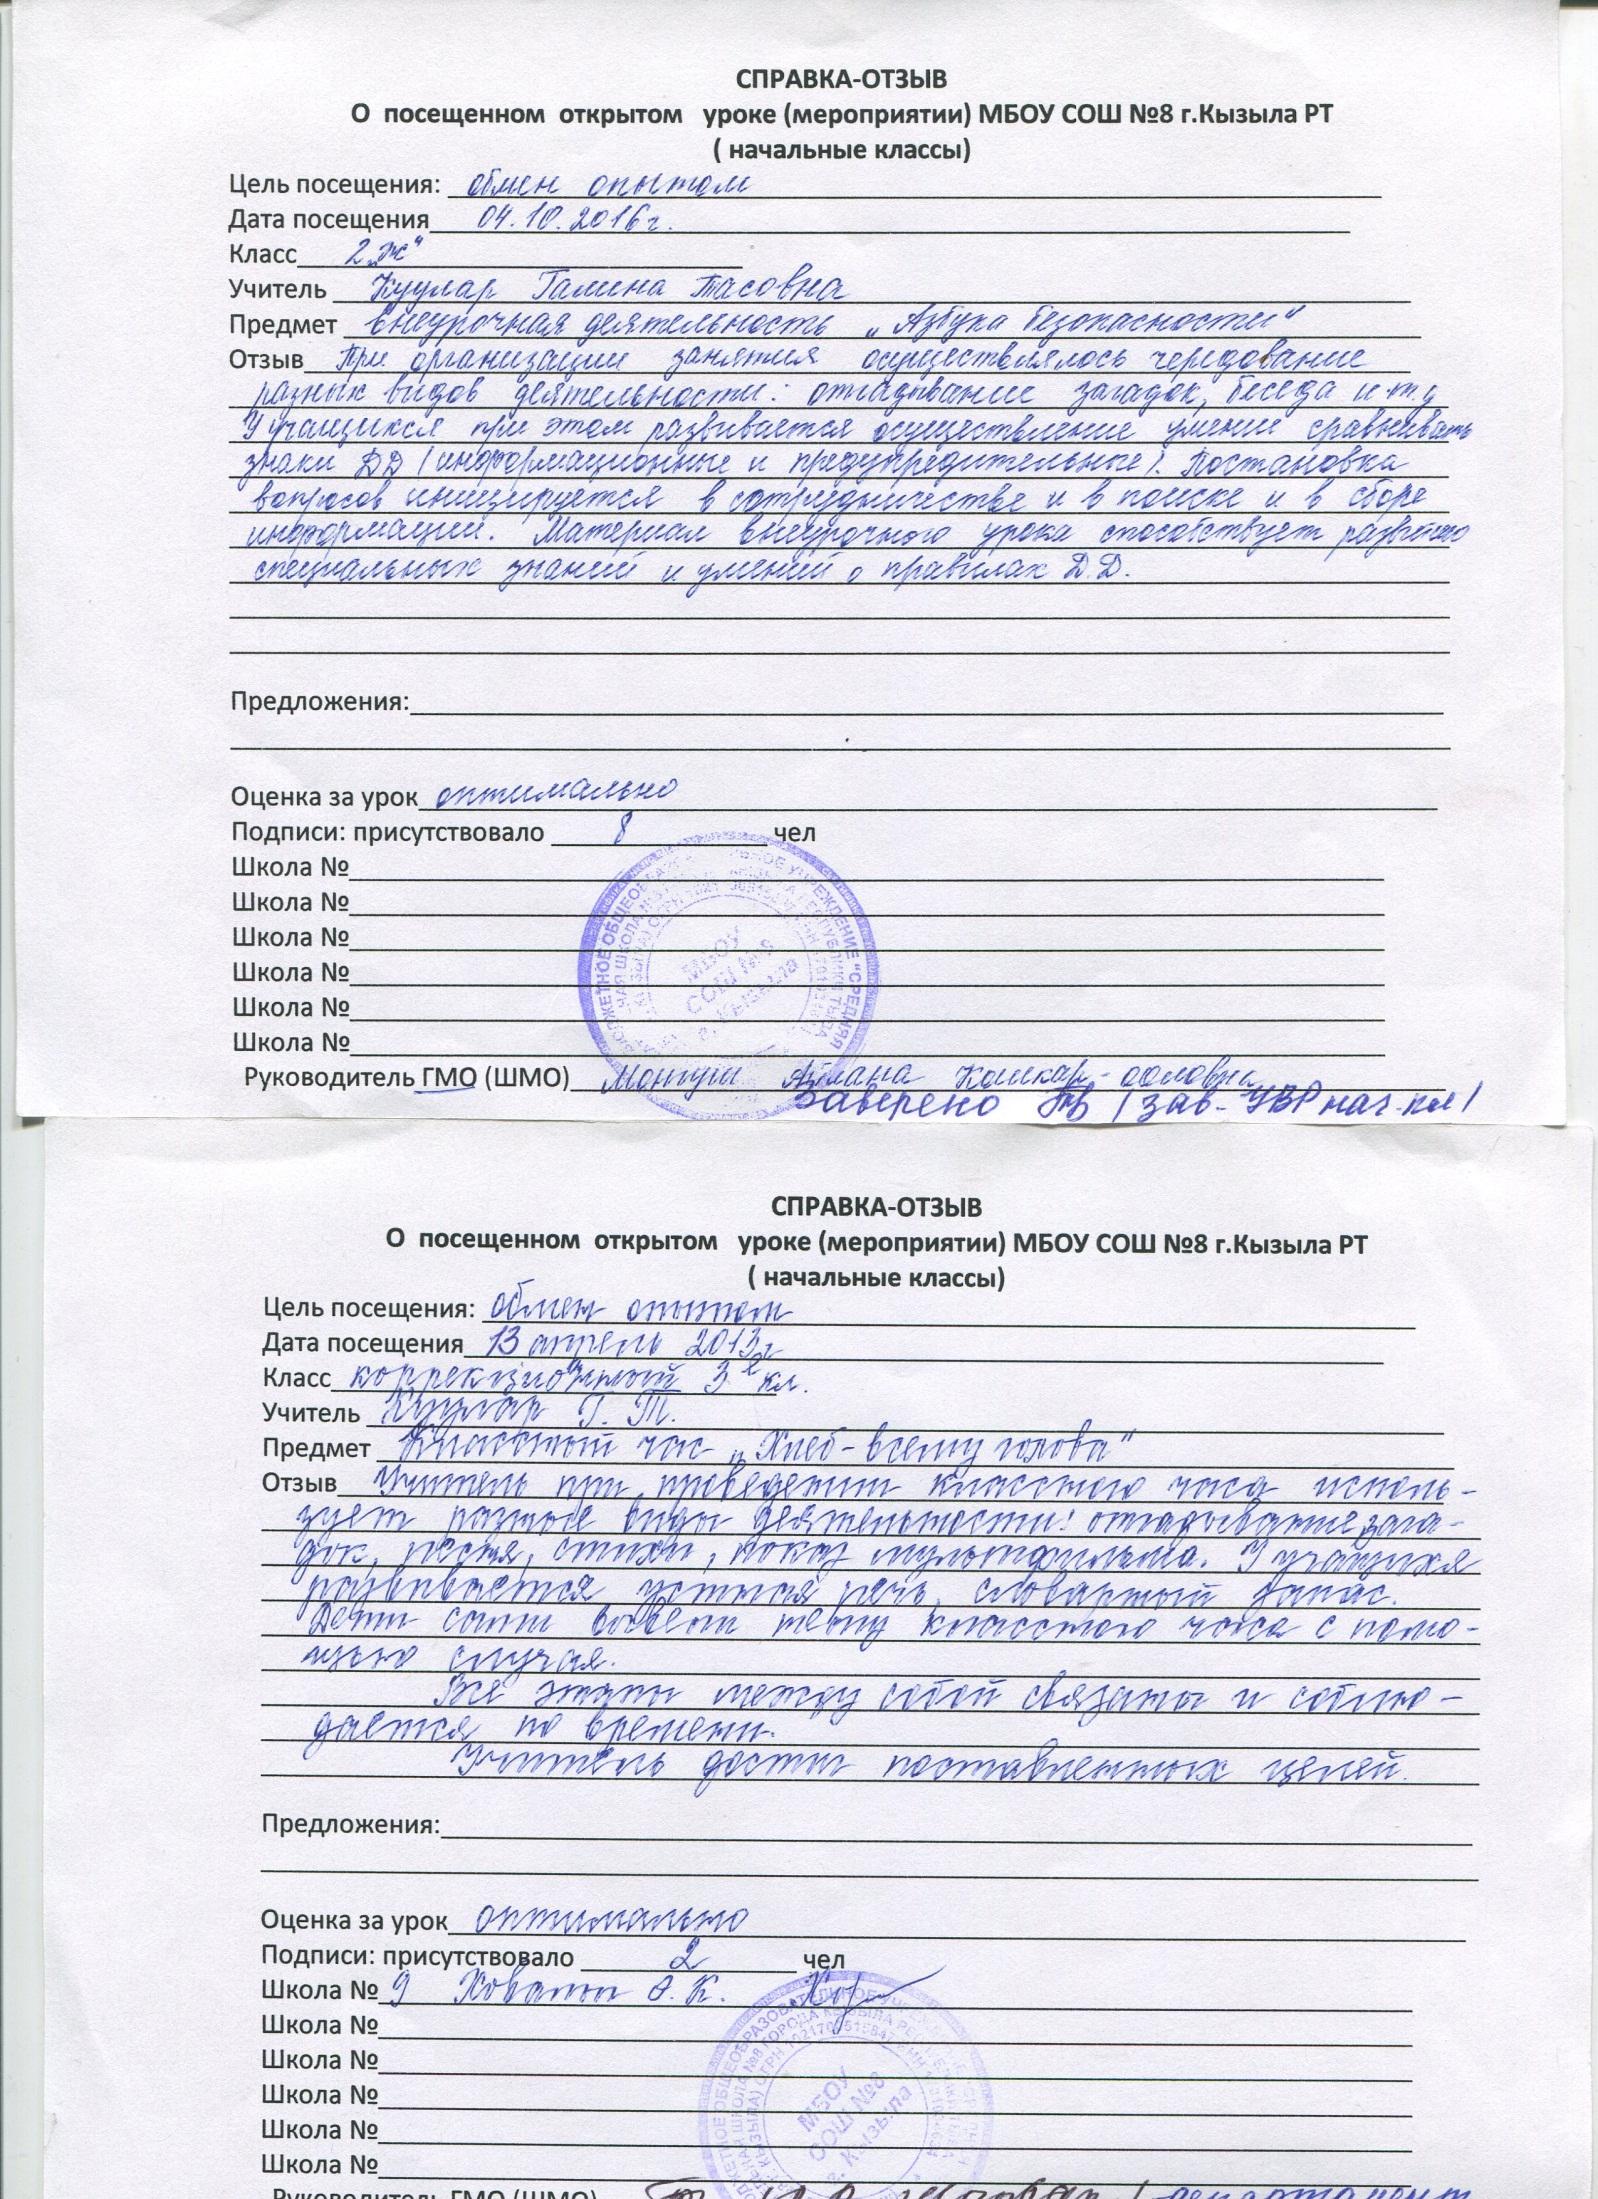 СПРАВКА-ОТЗЫВ
О посещенном открытом уроке (мероприятии) МБОУ СОШ №8 г.Кызыла РТ
( начальные классы)
Цель посещения: обмен опытом
Дата посещения 04.10.2016г.
Класс 2„ж“
Учитель Куулар Галина Тасовна
Предмет внеурочная деятельность „Азбука безопасности“
Отзыв При организации занятия осуществлялось чередование
разных видов деятельности: отгадывание загадок, беседа и т.д
У учащихся при этом развивается осуществление умение сравнивать
знаки ДД (информационные и предупредительные). Постановка
вопросов инициируется в сотрудничестве и в поиске и в сборе
информации. Материал внеурочного урока способствует развитию
специальных знаний и умений о правилах Д.Д.
Предложения:
Оценка за урок оптимально
Подписи: присутствовало 8 чел
Школа №
Школа №
Школа №
Школа №
Школа №
Школа №
МБОУ
СОШ №8
г. Кызыла
Руководитель ГМО (ШМО) Монгуш Айлана Кошкар-ооловна
Заверено (зав. УВР нач. кл)
СПРАВКА-ОТЗЫВ
О посещенном открытом уроке (мероприятии) МБОУ СОШ №8 г.Кызыла РТ
( начальные классы)
Цель посещения: обмен опытом
Дата посещения 13 апрель 2013г
Класс коррекционный 3 кл.
Учитель Куулар Г. Т.
Предмет Классный час „Хлеб-всему голова“
Отзыв Учитель при проведении классного часа исполь-
зует разные виды деятельности: отгадывание зага-
док, песня, стихи, показ мультфильма. У учащихся
развивается устная речь, словарный запас.
Дети сами вывели тему классного часа с помо-
щью случая.
Все этапы между собой связаны и соблю-
дается по времени.
Учитель достиг поставленных целей.
Предложения:
Оценка за урок оптимально
Подписи: присутствовало 2 чел
Школа № 9 Ховалыг А.К.
Школа №
Школа №
Школа №
Школа №
Школа №
МБОУ
СОШ №8
г. Кызыла
Руководитель ГМО (ШМО)